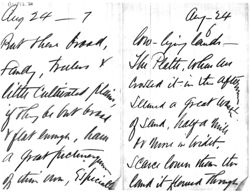 Aug 24 — 7
But these broad,
sandy, treeless &
little cultivated plains,
if they be but broad
& flat enough, have
a great picturesqueness
of their own, Especially
Aug-24
low-lying lands—
The Platte, when we
crossed it in the afternoon
seemed a great waste
of sand, half a mile
or more in width,
scarce lower than the
land it flowed through